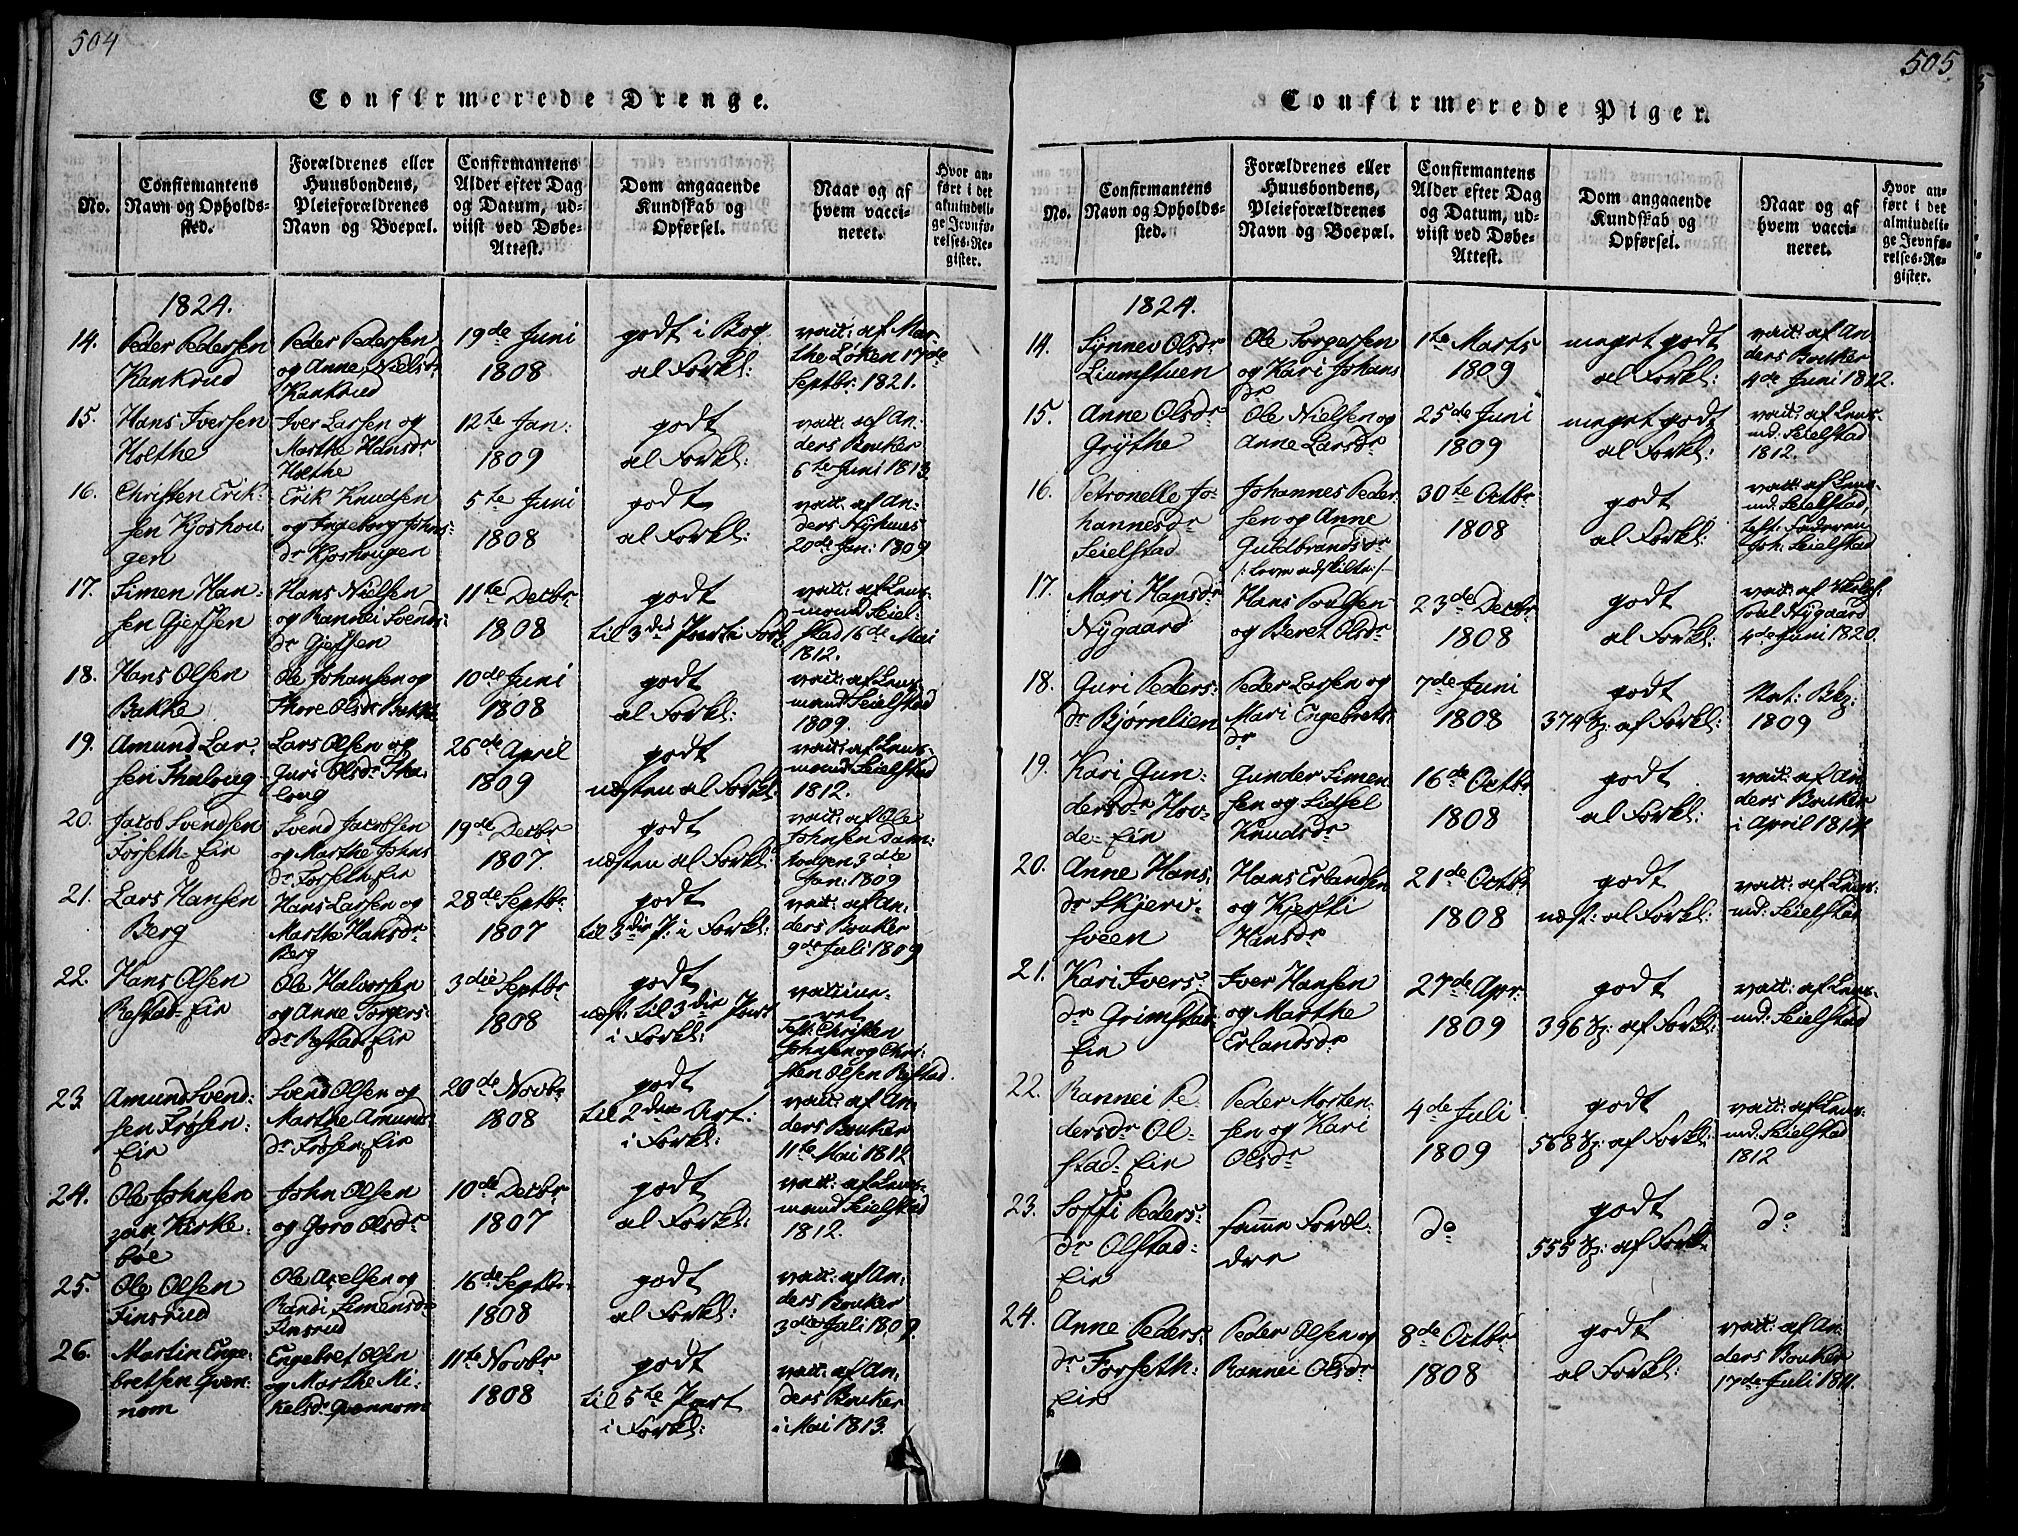 504
Confirmerede Drenge.
No.
Confirmantens
Navn og Opholds-
sted.
Forældrenes eller
Huusbondens,
Pleieforældrenes
Navn og Boepæl.
Confirmantens
Alder efter Dag
og Datum, ud-
viist ved Døbe-
Attest.
Dom angaaende
Kundskab og
Opførsel.
Naar og af
hvem vacci-
neret.
Hvor an-
ført i det
almindeli-
ge Jevnfø-
relses-Re-
gister.
1824.
14.
Peder Pedersen
Kankrud
Peder Pedersen
og Anne Nielsdr
Kankrud
19de Juni
1808
godt i Bog
al Forkl:
vacc: af Mar-
the Løken 17de
Septbr: 1821.
15.
Hans Iversen
Holthe
Iver Larsen og
Marthe Hansdr
Holthe
12te Jan:
1809
godt
al Forkl:
vacc: af An-
ders Bouker
6te Juni 1813
16.
Christen Erik-
sen Kjoshou-
gen
Erik Knudsen
og Ingeborg Johns-
dr Kjoshougen
5te Juni
1808
godt
al Forkl:
vacc: af An-
ders
20de Jan: 1809
17.
Simen Han-
sen Gjefsen
Hans Nielsen
og Rannei Svends-
dr Gjefsen
11te Decbr
1808
godt
til 3die Part i Fork
vacc: af Lens-
mand Seiel-
stad 16de Mai
1812.
18.
Hans Olsen
Bakke
Ole Johansen og
Thore Olsdr Bakke
10de Juni
1808
godt
al Forkl:
vacc: af Lens-
mand Seielstad
1809.
19.
Amund Lar-
sen Skalvug
Lars Olsen og
Guri Olsdr Ska-
lvug
26de April
1809
godt
næsten al Forkl:
vacc: af Lens-
mand Seielstad
1812.
20.
Jacob Svendsen
Forseth-Eie
Svend Jacobsen
og Marthe Johns
dr Forseth-Eie
19de Decbr
1807.
godt
næsten al Forkl:
vacc: af Ole
Johnsen Dam-
hougen 3die
Jan: 1809
21.
Lars Hansen
Berg
Hans Larsen og
Marthe Hansdr
Berg
28de Septbr
1807
godt
til 3die P: i Forkl:
vacc: af An-
ders Bouker
9de Juli 1809
22.
Hans Olsen
Rostad-Eie
Ole Halvorsen
og Anne Torgers-
dr Rostad-Eie
3die Septbr
1808
godt
næst: til 3die Part
i Forkl:
vaccine-
ret
Test: Christen
Johnsen og Chri-
sten Olsen Rostad.
23.
Amund Svend-
sen Frøsen-
Eie
Svend Olsen og
Marthe Amunds-
dr Frøsen-Eie
20de Novbr
1808
godt
til 2den Art:
i Forkl:
vacc: af An-
ders Bouker
11te Mai 1812
24.
Ole Johnsen
paa Kirke-
bøe
John Olsen
og Goro Olsdr
10de Decbr
1807
godt
al Forkl:
vacc: af Lens-
mand Seielstad
1812.
25.
Ole Olsen
Finsrud
Ole Axelsen og
Randi Semensdr
Finsrud
16de Septbr
1808
godt
al Forkl:
vacc: af An-
ders Bouker
3die Juli 1809.
26.
Martin Enge-
bretsen Qven-
nom
Engebret Olsen
og Marthe Mi-
kelsdr Qvennom
11te Novbr
1808
godt
til 5te Part
i Forkl:
vacc: af An-
ders Bouker
i Mai 1813.
505.
Confirmerede Piger.
No.
Confirmantens
Navn og Opholds-
sted.
Forældrenes eller
Huusbondens,
Pleieforældrenes
Navn og Boepæl.
Confirmantens
Alder efter Dag
og Datum, ud-
viist ved Døbe-
Attest.
Dom angaaende
Kundskab og
Opførsel.
Naar og af
hvem vacci-
neret.
Hvor an-
ført i det
almindeli-
ge Jevnfø-
relses-Re-
gister.
1824.
14.
Synnev Olsdr
Liumstuen
Ole Torgersen
og Kari Johans
dr
1te Marts
1809
meget godt
al Forkl:
vacc: af An-
ders Bouker
4de Juni 1812.
15.
Anne Olsdr
Grythe
Ole Nielsen og
Anne Larsdr
25de Juni
1809
meget godt
al Forkl:
vacc: af Lens-
md: Seielstad
1812.
16.
Petronelle Jo-
hannesdr
Seielstad
Johannes Peder-
sen og Anne
Guldbrandsdr
/: leve adskilte:/
30te Octbr
1808
godt
al Forkl:
vacc: af Lens-
md: Seielstad,
test: Faderen
Joh: Seielstad
17.
Mari Hansdr
Nygaard
Hans Poulsen
og Beret Olsdr
23de Decbr
1808
godt
al Forkl:
vacc: af
Nygaard
4de Juni 1820.
18.
Guri Peders-
dr Bjørnlien
Peder Larsen og
Mari Engebrets-
dr
7de Juni
1808
godt
374 Sp: af Forkl:
Nat: Bkp:
1809
19.
Kari Gun-
dersdr Hov-
de-Eie
Gunder Simen-
sen og Sidsel
Knudsdr
16de Octbr
1808
godt
al Forkl:
vacc: af An-
ders Bouker
i April 1814.
20.
Anne Hans-
dr Skjerv-
sveen
Hans Erlandsen
og Kjersti
Hansdr
21de Octbr
1808
godt
næst: al Forkl:
vacc: af Lens-
md: Seielstad
21.
Kari Ivers-
dr Grimstad-
Eie
Iver Hansen
og Marthe
Erlandsdr
27de Apr:
1809
godt
396 Sp: af Forkl:
vacc: af Lens-
md: Seielstad
22.
Rannei Pe-
dersdr Ol-
stad-Eie
Peder Morten-
sen og Kari
Olsdr
4de Juli
1809
godt
568 Sp: af Forkl:
vacc: af Lens-
md: Seielstad
1812
23.
Soffi Peders-
dr Olstad-
Eie
samme Foræl-
dre
do
godt
555 Sp: af Forkl:
do
24.
Anne Peders-
dr Forseth-
Eie
Peder Olsen og
Rannei Olsdr
8de Octbr
1808
godt
al Forkl:
vacc: af An-
ders Bouker
17de Juli 1811.